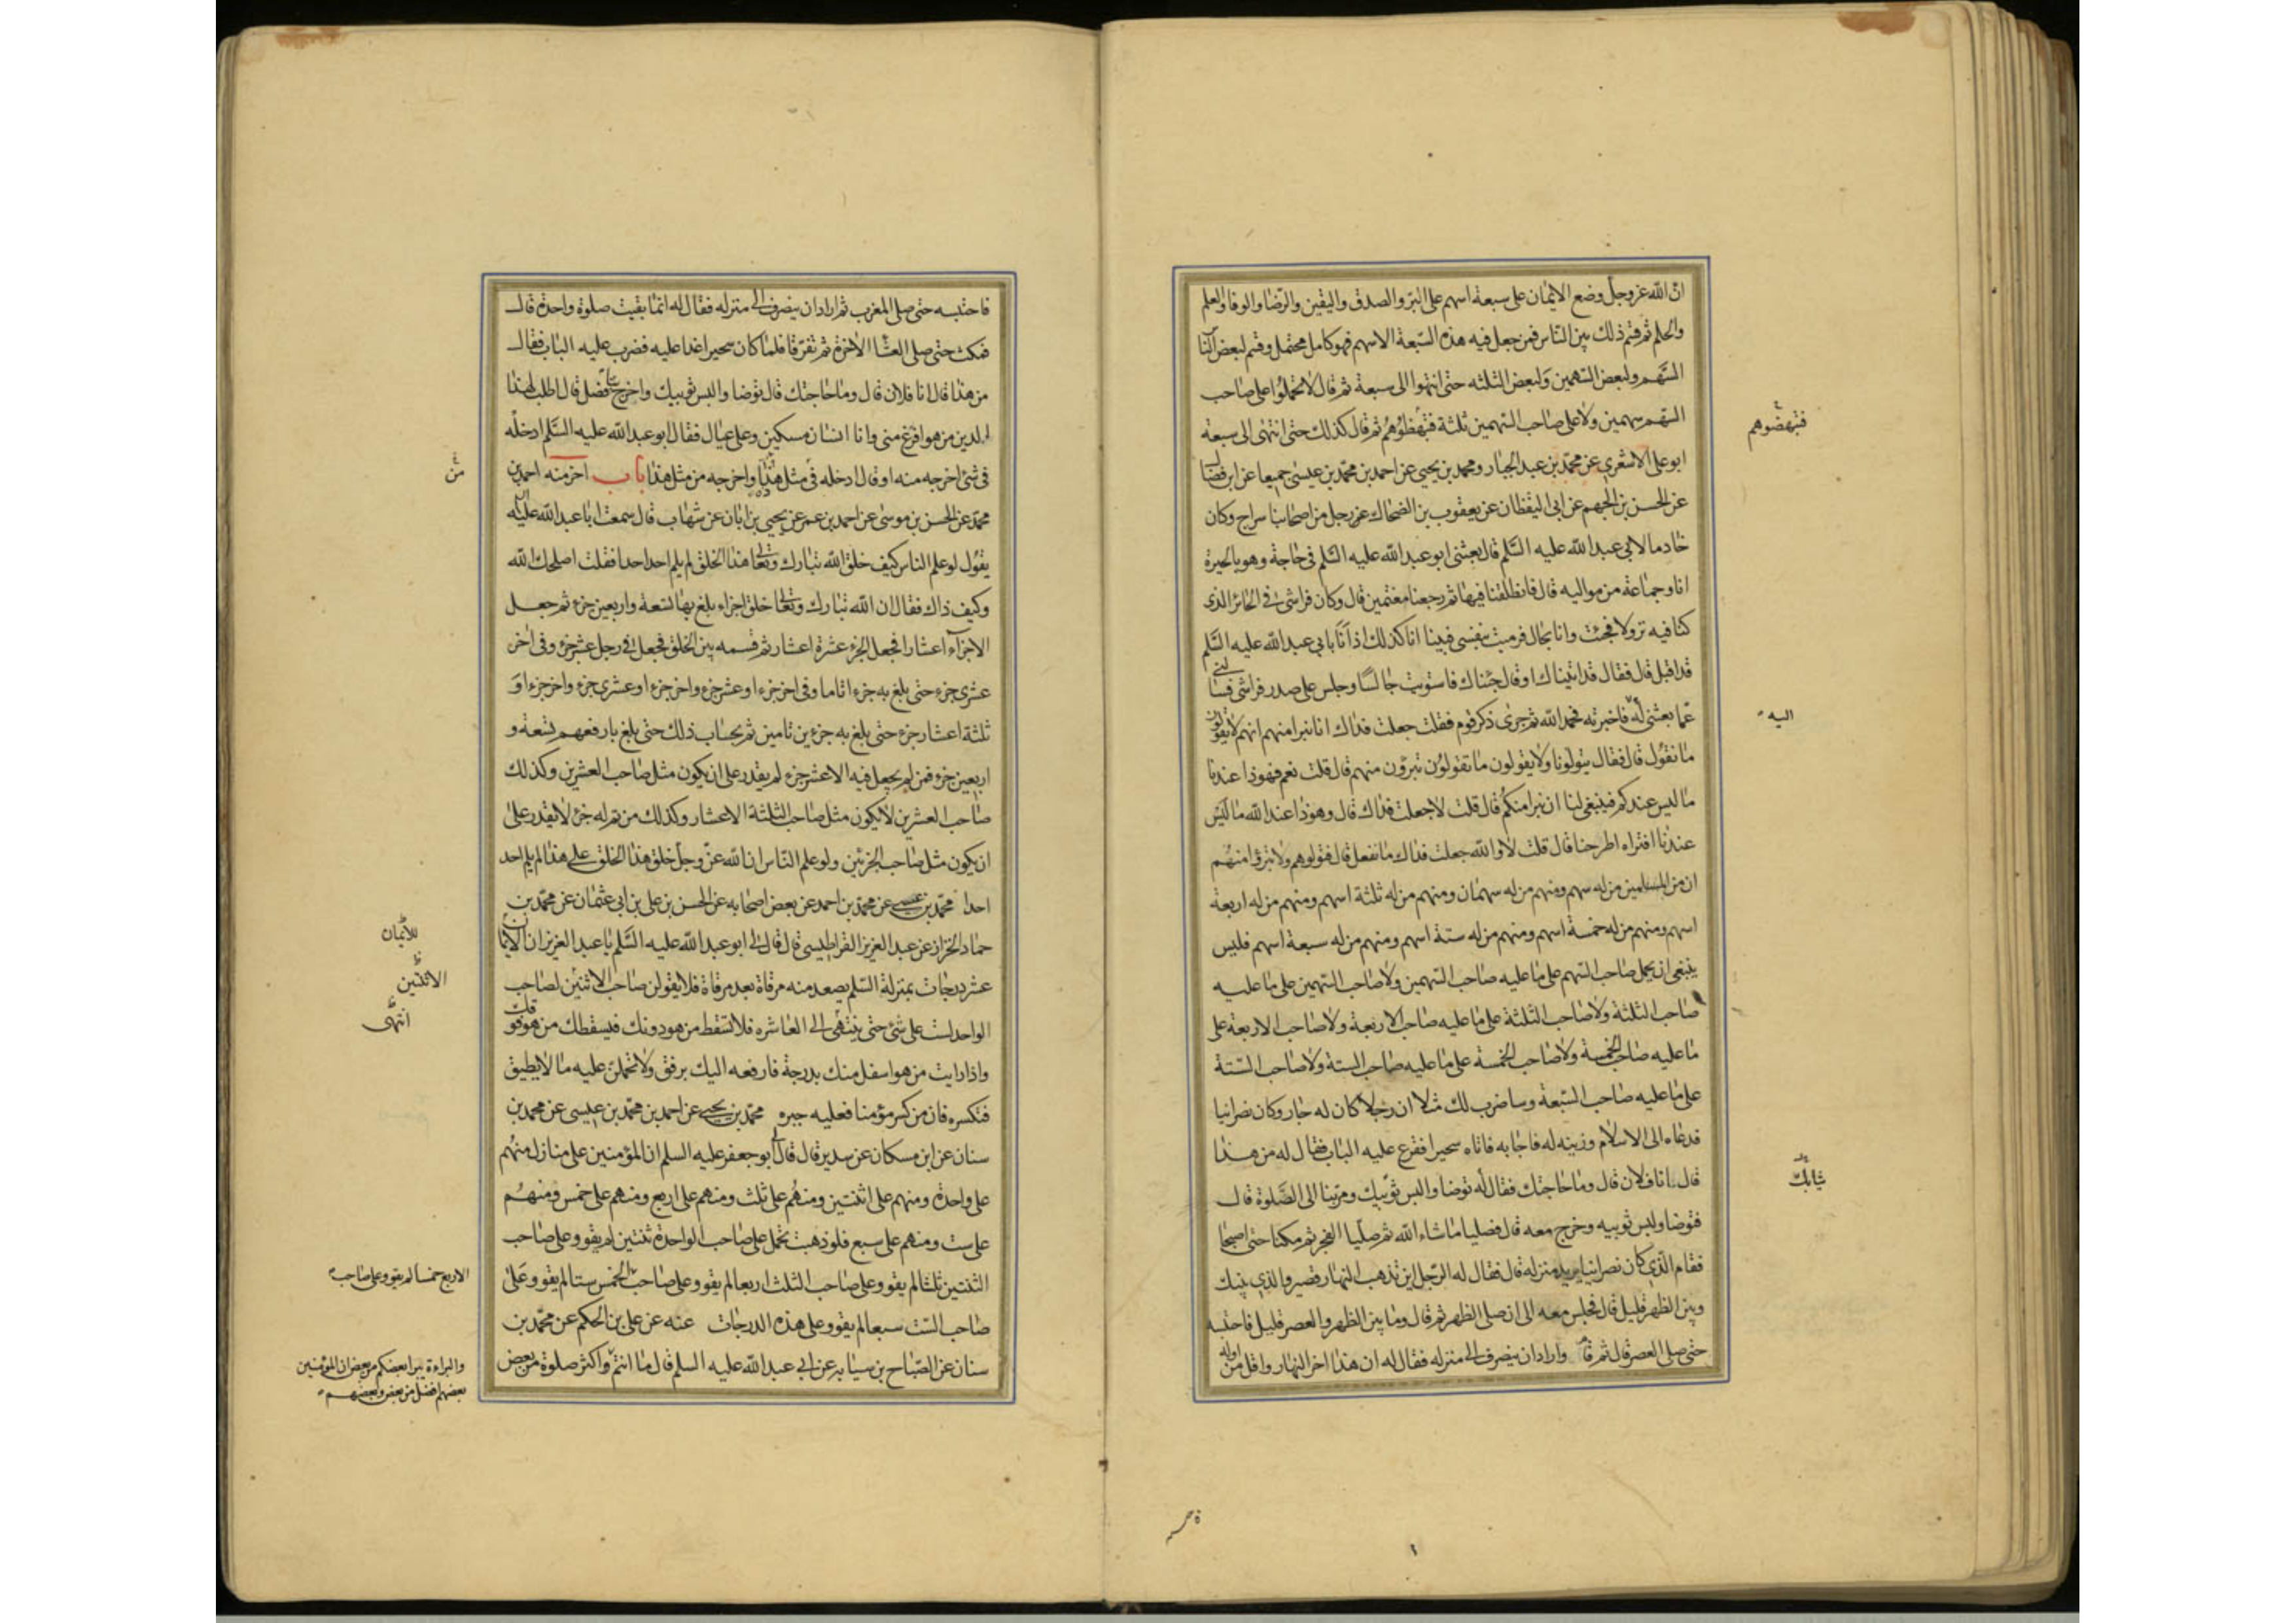 ان الله عز وجل وضع الايمان على سبعة اسهم على البر والصدق واليقين والرضا والوفا والعلم
والحلم ثم قسم ذلك بين الناس فمن جعل فيه هذه السبعة الاسهم فهو كامل محتمل وقسم لبعض الناس
السهم ولبعض السهمين ولبعض الثلثه حتى انتهوا الى سبعة ثم قال لا تحملوا على صاحب
السهم سهمين ولا على صاحب السهمين ثلثة فتبهظوهم ثم قال كذلك حتى انتهى الى سبعة
فتبهضوهم
ابو على الاشعري عن محمد بن عبد الجبار ومحمد بن يحيى عن احمد بن محمد بن عيسى جميعا عن ابن فضال
عن الحسن بن الجهم عن ابى اليقظان عن يعقوب بن الضحاك عن رجل من اصحابنا سراج وكان
خادما لابي عبد الله عليه السلم قال بعثنى ابو عبد الله عليه السلم فى حاجة وهو بالحيرة
انا وجماعة من مواليه قال فانطلقنا فيها ثم رجعنا مغتمين قال وكان فراشى فى الحائر الذى
كنا فيه نزولا فجئت وانا بحال فرميت بنفسى فبينا انا كذلك اذا انا بابي عبد الله عليه السلم
قد اقبل قال فقال قد اتيناك او قال جئناك فاستويت جالسا وجلس على صدر فراشى فسالني
عما بعثنى له فاخبرته فحمد الله ثم جرى ذكر قوم فقلت جعلت فداك انا نبرا منهم انهم لا يقولون
اليه
ما نقول قال فقال يتولونا ولا يقولون ما تقولون تبرؤن منهم قال قلت نعم فهو ذا عندنا
ما ليس عندكم فينبغى لنا ان نبرا منكم قال قلت لا جعلت فداك قال وهو ذا عند الله ما ليس
عندنا افتراه اطرحنا قال قلت لا والله جعلت فداك ما نفعل قال فتولوهم ولا تبرؤا منهم
ان من المسلمين من له سهم ومنهم من له سهمان ومنهم من له ثلثة اسهم ومنهم من له اربعة
اسهم ومنهم من له خمسة اسهم ومنهم من له ستة اسهم ومنهم من له سبعة اسهم فليس
ينبغى ان يحمل صاحب السهم على ما عليه صاحب السهمين ولا صاحب السهمين على ما عليه
صاحب الثلثة ولا صاحب الثلثة على ما عليه صاحب الاربعة ولا صاحب الاربعة على
ما عليه صاحب الخمسة ولا صاحب الخمسة على ما عليه صاحب الستة ولا صاحب الستة
على ما عليه صاحب السبعة وساضرب لك مثلا ان رجلا كان له جار وكان نصرانيا
فدعاه الى الاسلام وزينه له فاجابه فاتاه سحيرا فقرع عليه الباب فقال له من هذا
قال انا فلان قال وما حاجتك فقال له توضا والبس ثوبيك ومر بنا الى الصلوة قال
ثيابك
فتوضا ولبس ثوبيه وخرج معه قال فصليا ما شاء الله ثم صليا الفجر ثم مكثا حتى اصبحا
فقام الذي كان نصرانيا يريد منزله قال فقال له الرجل اين تذهب النهار قصير والذي بينك
وبين الظهر قليل قال فجلس معه الى ان صلى الظهر ثم قال وما بين الظهر والعصر قليل فاحتبسه
حتى صلى العصر قال ثم قام واراد ان ينصرف الى منزله فقال له ان هذا اخر النهار واقل من اوله
فاحتبسه حتى صلى المغرب ثم اراد ان ينصرف الى منزله فقال له انما بقيت صلوة واحدة قال
فمكث حتى صلى العشا الاخرة ثم تفرقا فلما كان سحيرا غدا عليه فضرب عليه الباب فقال
من هذا قال انا فلان قال وما حاجتك قال توضا والبس ثوبيك واخرج بنا فصل قال اطلب لهذا
الدين من هو افرغ منى وانا انسان مسكين وعلى عيال فقال ابو عبد الله عليه السلم ادخله
فى شئ اخرجه منه او قال ادخله فى مثل هذا واخرجه من مثل هذا باب اخر منه احمد بن
من
محمد عن الحسن بن موسى عن احمد بن عمر عن يحيى بن ابان عن شهاب قال سمعت ابا عبد الله عليه السلم
يقول لو علم الناس كيف خلق الله تبارك وتعالى هذا الخلق لم يلم احد احدا فقلت اصلحك الله
وكيف ذاك فقال ان الله تبارك وتعالى خلق اجزاء بلغ بها تسعة واربعين جزء ثم جعل
الاجزآء اعشارا فجعل الجزء عشرة اعشار ثم قسمه بين الخلق فجعل فى رجل عشر جزء وفى اخر
عشرى جزء حتى بلغ به جزء اتاما وفى اخر جزء او عشر جزء واخر جزء او عشرى جزء واخر جزء او
ثلثة اعشار جزء حتى بلغ به جزءين تامين ثم بحساب ذلك حتى بلغ بارفعهم تسعة و
اربعين جزء فمن لم يجعل فيه الا عشر جزء لم يقدر على ان يكون مثل صاحب العشرين وكذلك
صاحب العشرين لا يكون مثل صاحب الثلثة الاعشار وكذلك من تم له جزء لا يقدر على
ان يكون مثل صاحب الجزئين ولو علم الناس ان الله عز وجل خلق هذا الخلق على هذا لم يلم احد
احدا محمد بن يحيى عن محمد بن احمد عن بعض اصحابه عن الحسن بن على بن ابى عثمان عن محمد بن
حماد الخزاز عن عبد العزيز القراطيسي قال قال لى ابو عبد الله عليه السلم يا عبد العزيز ان الايمان
للايمان
عشر درجات بمنزلة السلم يصعد منه مرقاة بعد مرقاة فلا يقولن صاحب الاثنين لصاحب
الاثنتين
الواحد لست على شئ حتى ينتهى الى العاشره فلا تسقط من هو دونك فيسقطك من هو فوقك
انتهى
واذا رايت من هو اسفل منك بدرجة فارفعه اليك برفق ولا تحملن عليه ما لا يطيق
فتكسره فان من كسر مؤمنا فعليه جبره محمد بن يحيى عن احمد بن محمد بن عيسى عن محمد بن
سنان عن ابن مسكان عن سدير قال قال لى ابو جعفر عليه السلم ان المؤمنين على منازل منهم
على واحدة ومنهم على اثنتين ومنهم على ثلث ومنهم على اربع ومنهم على خمس ومنهم
على ست ومنهم على سبع فلو ذهبت تحمل على صاحب الواحدة ثنتين لم يقو وعلى صاحب
الثنتين ثلثا لم يقو وعلى صاحب الثلث اربعا لم يقو وعلى صاحب الخمس ستا لم يقو وعلى
الاربع خمسا لم يقو وعلى صاحب
صاحب الست سبعا لم يقو وعلى هذه الدرجات عنه عن على بن الحكم عن محمد بن
سنان عن الصباح بن سيابه عن ابى عبد الله عليه السلم قال ما انتم واكثر صلوة من بعض
والبراءة يبرا بعضكم من بعض ان المؤمنين
بعضهم افضل من بعض وبعضهم